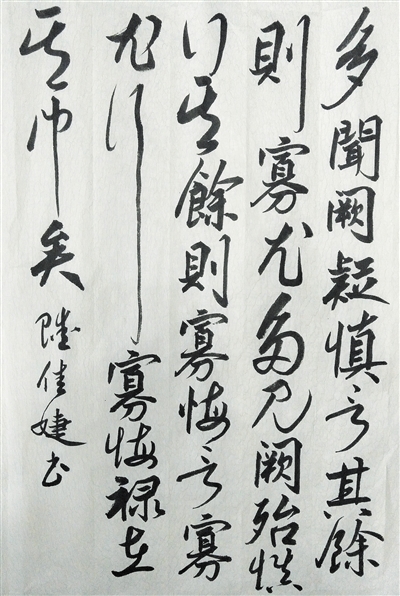 多聞闕疑慎言其餘
則寡尤多見闕殆慎
行其餘則寡悔言寡
尤行寡悔禄在
其中矣
陸佳婕书